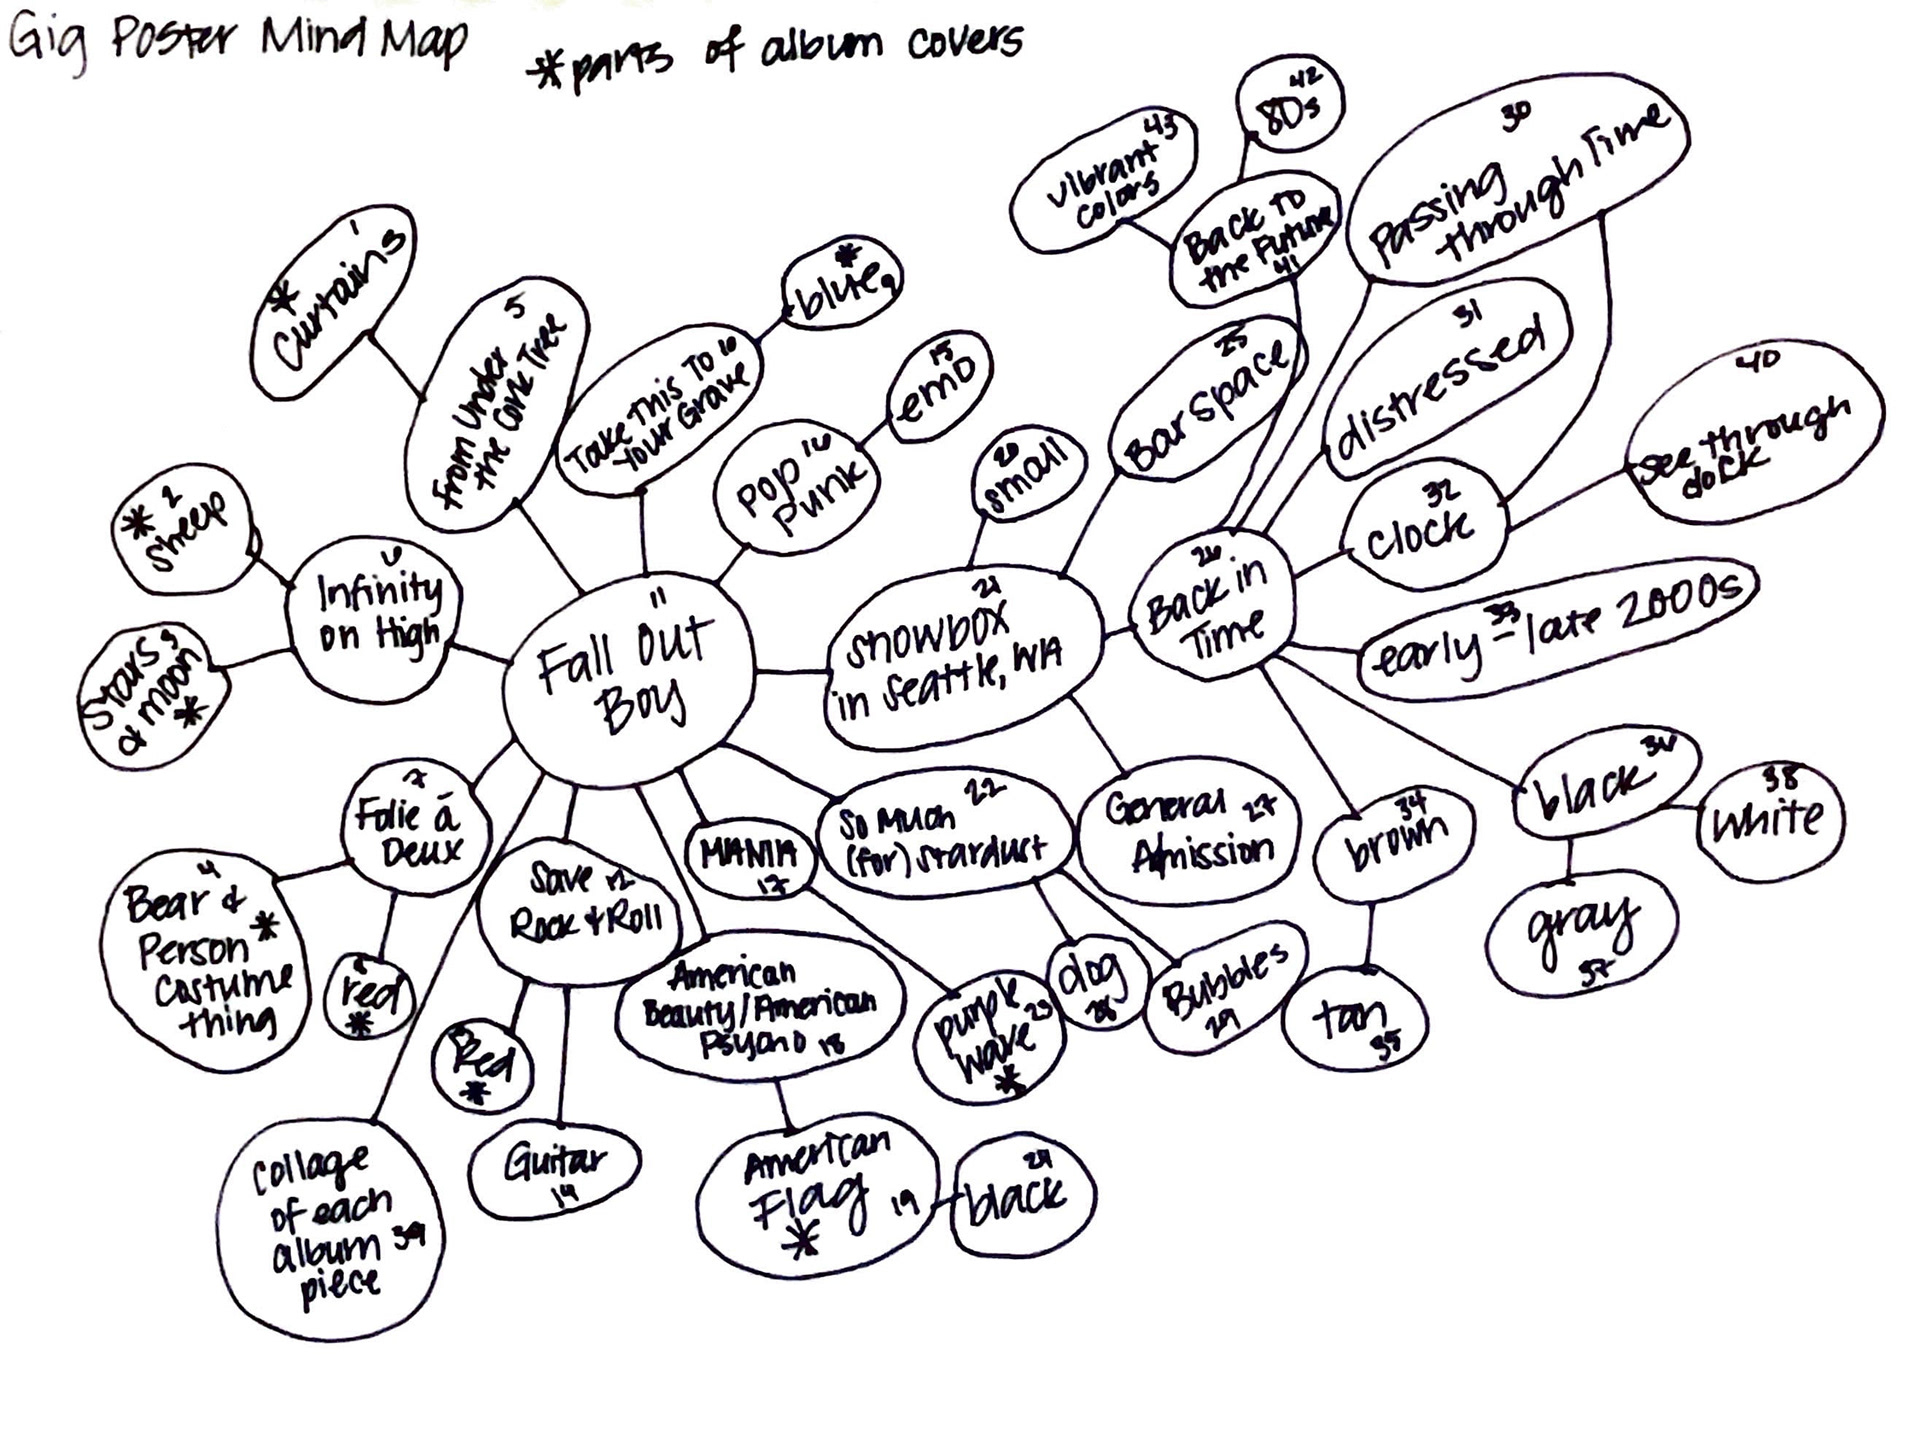 Gig Poster Mind Map
*parts of album covers
42
80s
43
vibrant
colors
Back to
the Future
41
30
Passing
through Time
1
*
Curtains
5
From Under
the Cork Tree
Take This To 10
Your Grave
*
blue 9
15
emo
Pop 16
Punk
20
small
25
Bar Space
31
distressed
32
Clock
40
see through
clock
* 2
Sheep
6
Infinity
on High
Stars 3
& moon
*
11
Fall Out
Boy
21
Showbox
in Seattle, WA
26
Back in
Time
33
early - late 2000s
7
Folie à
Deux
4
Bear &
Person *
Costume
thing
8
red
*
Save 12
Rock & Roll
MANIA
17
So Much 22
(for) Stardust
General 27
Admission
34
brown
tan
35
black 36
38
white
gray
37
13
Red
*
Guitar
14
American
Beauty/American
Psycho 18
purple
wave 23
*
dog
28
Bubbles
29
American
Flag 19
*
24
black
collage
of each
album 39
piece